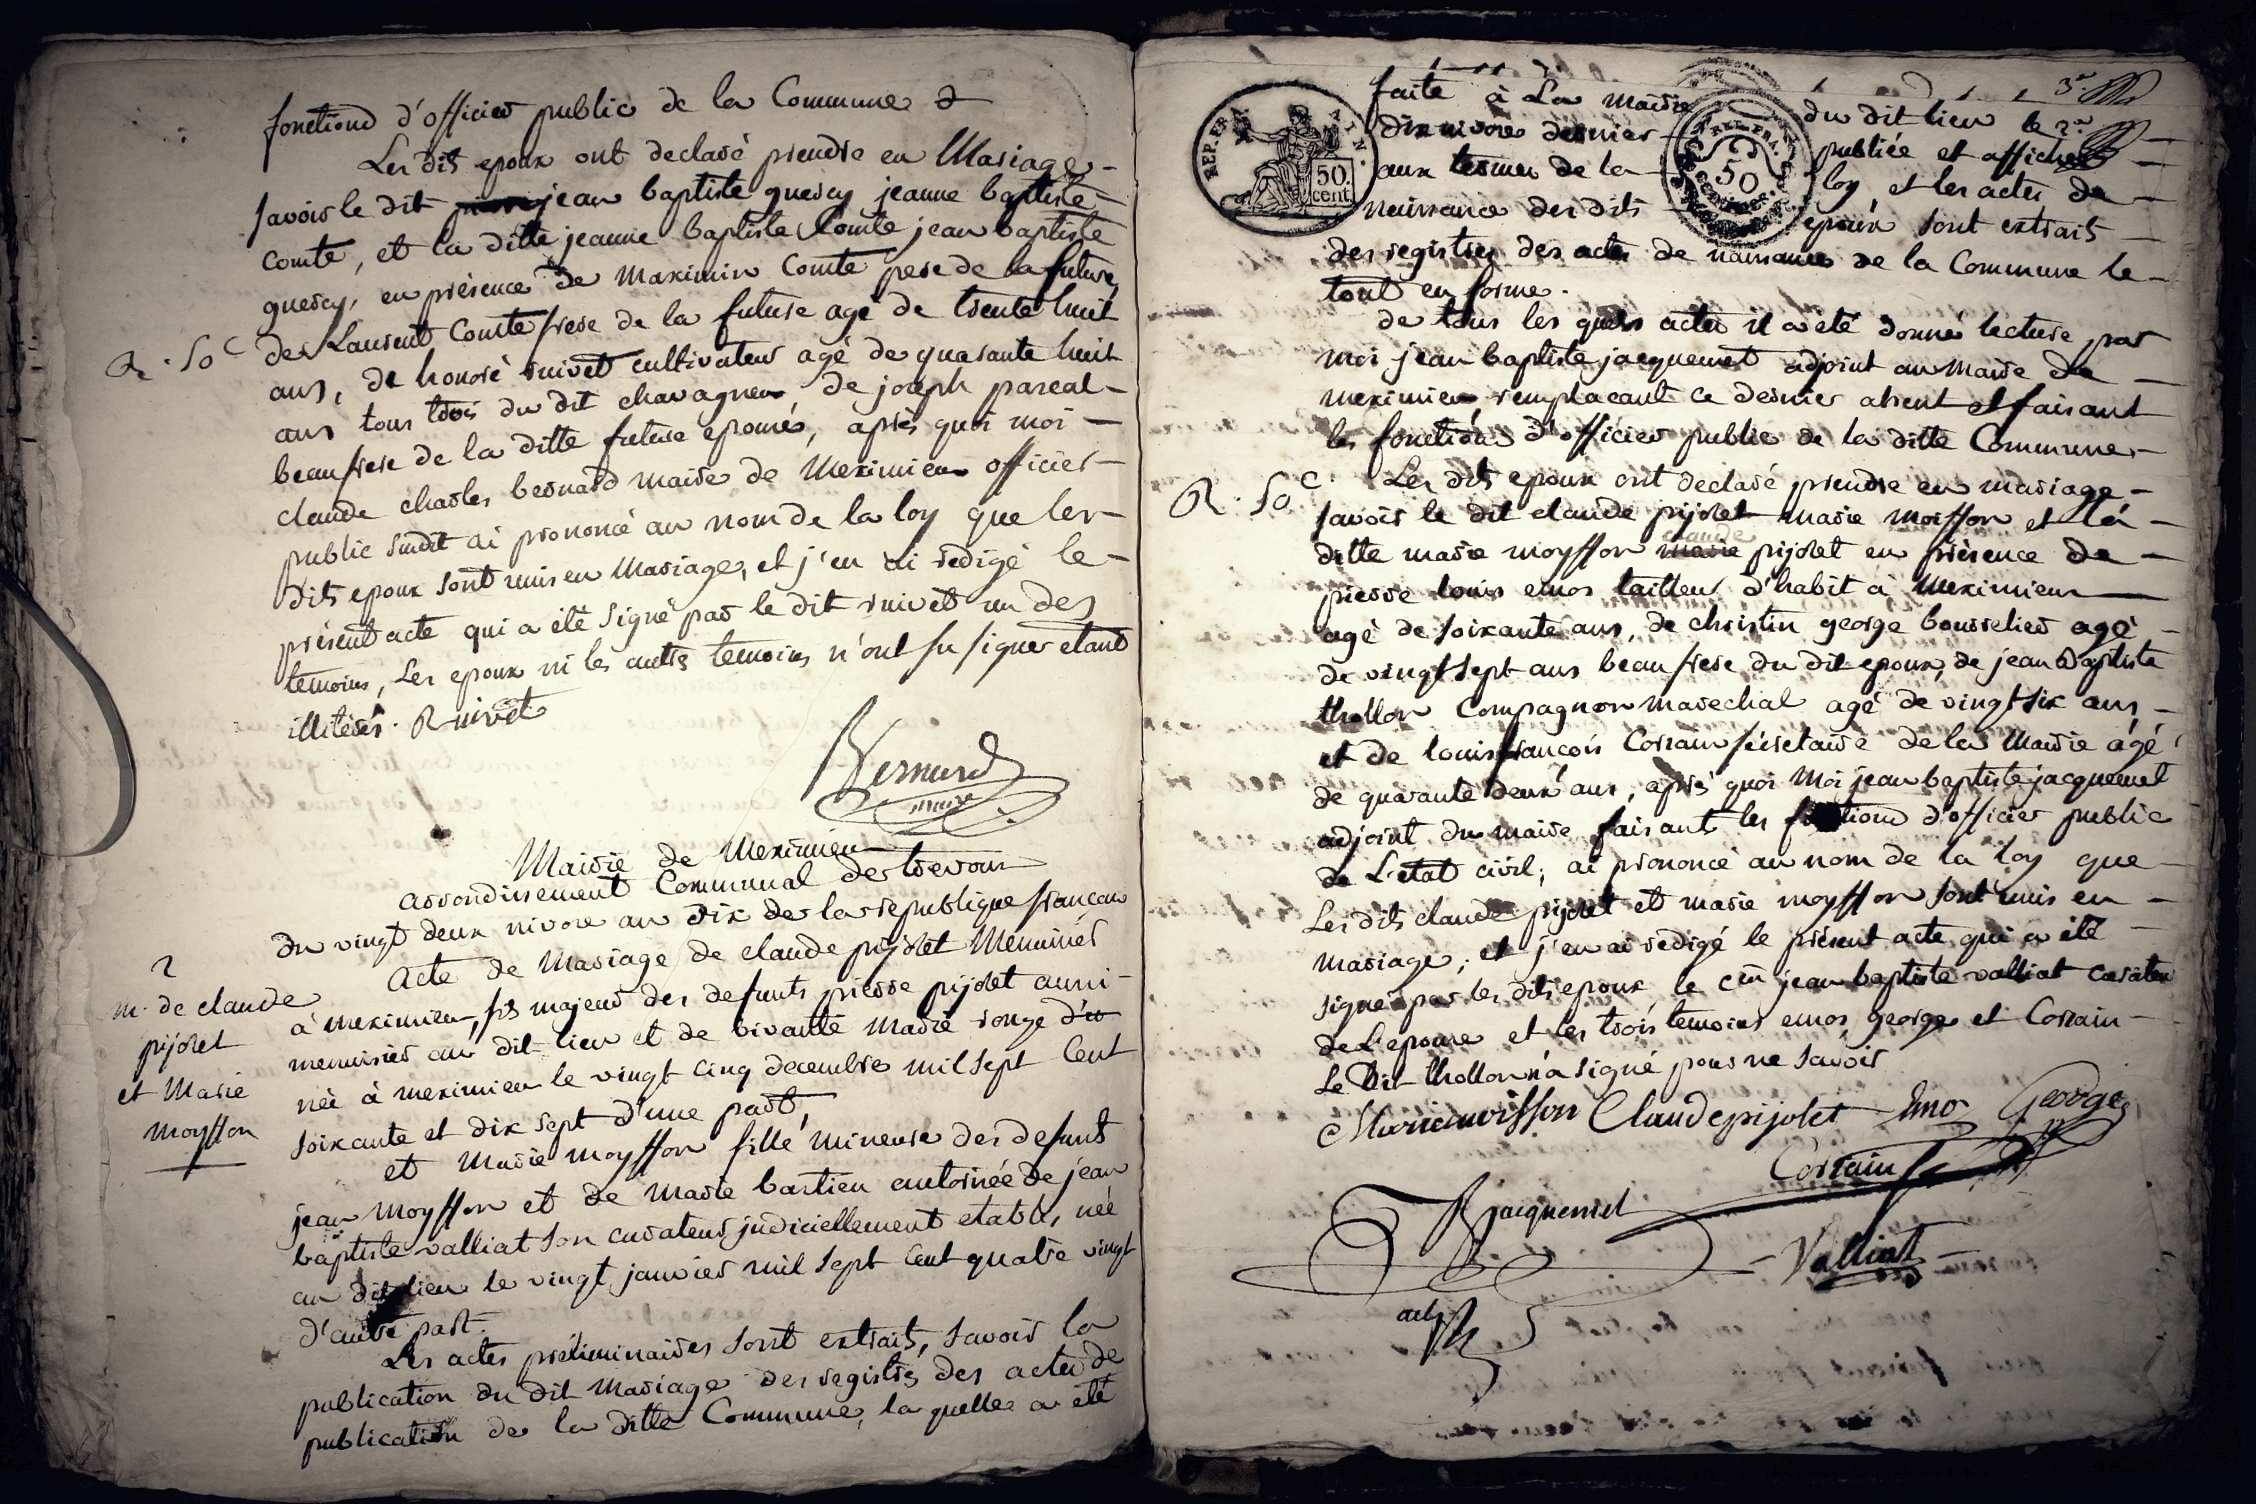 fonctiond d'officier public de la Commune &
Les dits epoux ont declaré prendre en Mariage
savoir le dit jean baptiste quercy jeanne baptiste
Comte, et la ditte jeanne baptiste Comte jean baptiste
quercy, en présence de Maximin Comte pere de la future
R. 50 c
de Laurent Comte frere de la future agé de trente huit
ans, de honoré ruivet cultivateur agé de quarante huit
ans tous trois du dit chavagneu, de joseph pascal
beaufrere de la ditte future epouse, après quoi moi
claude charles bernard maire de Meximieu officier
public susdit ai prononcé au nom de la loy que les
dits epoux sont unis en Mariage, et j'en ai redigé le
présent acte qui a été signé par le dit ruivet un des
temoins, Les epoux ni les autres temoins n'ont su signer etant
illiterés. Ruivet
Bernard
maire
Mairie de Meximieu
arrondissement Communal de trevoux
du vingt deux nivose an dix de la republique francaise
2
m. de claude
pijolet
et Marie
moysson
Acte de Mariage de claude pijolet Menuisier
à meximieu, fils majeur des defunts pierre pijolet aussi
menuisier au dit lieu et de vivante Marie ronze
née à meximieu le vingt cinq decembre mil sept Cent
soixante et dix sept d'une part,
et Marie moysson fille mineure des defunts
jean Moysson et de Marie bastien autorisée de jean
baptiste valliat son curateur judiciellement etabli, née
au dit lieu le vingt janvier mil sept Cent quatre vingt
d'autre part.
Les actes préliminaires sont extraits, savoir la
publication du dit Mariage des registres des actes de
publication de la ditte Commune, la quelle a été
REP. FRA
50.
cent.
REP. FRA.
50
3e
2e
faite à La mairie du dit lieu le
dix nivose dernier publiée et affichée
aux termes de la loy et les actes de
naissance des dits epoux sont extraits
des registres des actes de naissances de la Commune le
tout en forme.
de tous les quels actes il a été donné lecture par
moi jean baptiste jacquemet adjoint au maire de
meximieu remplacant ce dernier absent et faisant
les fonctions d'officier public de la ditte Commune
R. 50 c.
Les dits epoux ont declaré prendre en mariage
savoir le dit claude pijolet marie moisson et la
claude
ditte marie moysson marie pijolet en présence de
pierre louis emos tailleur d'habit à Meximieu
agé de soixante ans, de christin george bourrelier agé
de vingt sept ans beau frere du dit epoux, de jean Baptiste
thollon Compagnon marechal agé de vingt six ans
et de louis francois Corrain sécretaire de la Mairie agé
de quarante deux ans, après quoi Moi jean baptiste jacquemet
adjoint du maire faisant les fonctiond d'officier public
de L'etat civil, ai prononcé au nom de la loy que
Les dits claude pijolet et marie moysson sont unis en
mariage, et j'en ai redigé le présent acte qui a été
signé par les dits epoux le cen jean baptiste valliat curateur
de L'epouse et les trois temoins emos, george et Corrain
Le Dit thollon n'a signé pour ne savoir
Marie moisson Claude pijolet Emos George
Corrain
Jacquemet
Valliat
adj